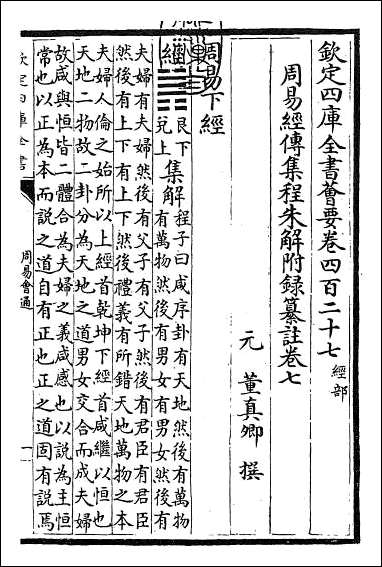 欽定四庫全書薈要卷四百二十七 經部
周易經傳集程朱解附録纂註卷七
元 董真卿 撰
周易下經
經
艮下
兌上
集解
程子曰咸序卦有天地然後有萬物
有萬物然後有男女有男女然後有
夫婦有夫婦然後有父子有父子然後有君臣有君臣
然後有上下有上下然後禮義有所錯天地萬物之本
夫婦人倫之始所以上經首乾坤下經首咸繼以恒也
天地二物故二卦分為天地之道男女交合而成夫婦
故咸與恒皆二體合為夫婦之義咸感也以説為主恒
常也以正為本而説之道自有正也正之道固有説焉
欽定四庫全書
周易會通
一